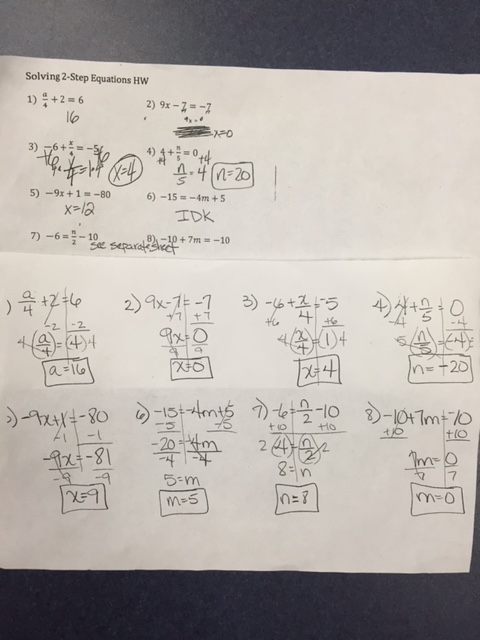 Solving 2-Step Equations HW
1) a/4 + 2 = 6
16
2) 9x − 7 = −7
9x = 0
x=0
3) −6 + x/4 = −5
+6 +6
x/4 = 1 · 4
x=4
4) 4 + n/5 = 0
+4 +4
n/5 = 4
n=20
5) −9x + 1 = −80
x=12
6) −15 = −4m + 5
IDK
7) −6 = n/2 − 10
see separate sheet
8) −10 + 7m = −10
) a/4 + 2 = 6
−2 −2
4 (a/4) = (4) 4
a=16
2) 9x−7 = −7
+7 +7
9x = 0
9 9
x=0
3) −6 + x/4 = −5
+6 +6
4 (x/4) = (1) 4
x=4
4) 4 + n/5 = 0
−4 −4
5 (n/5) = (−4) 5
n=−20
) −9x+1 = −80
−1 −1
−9x = −81
−9 −9
x=9
6) −15 = −4m+5
−5 −5
−20 = −4m
−4 −4
5=m
m=5
7) −6 = n/2 −10
+10 +10
2 (4) = (n/2) 2
8=n
n=8
8) −10+7m = −10
+10 +10
7m = 0
7 7
m=0